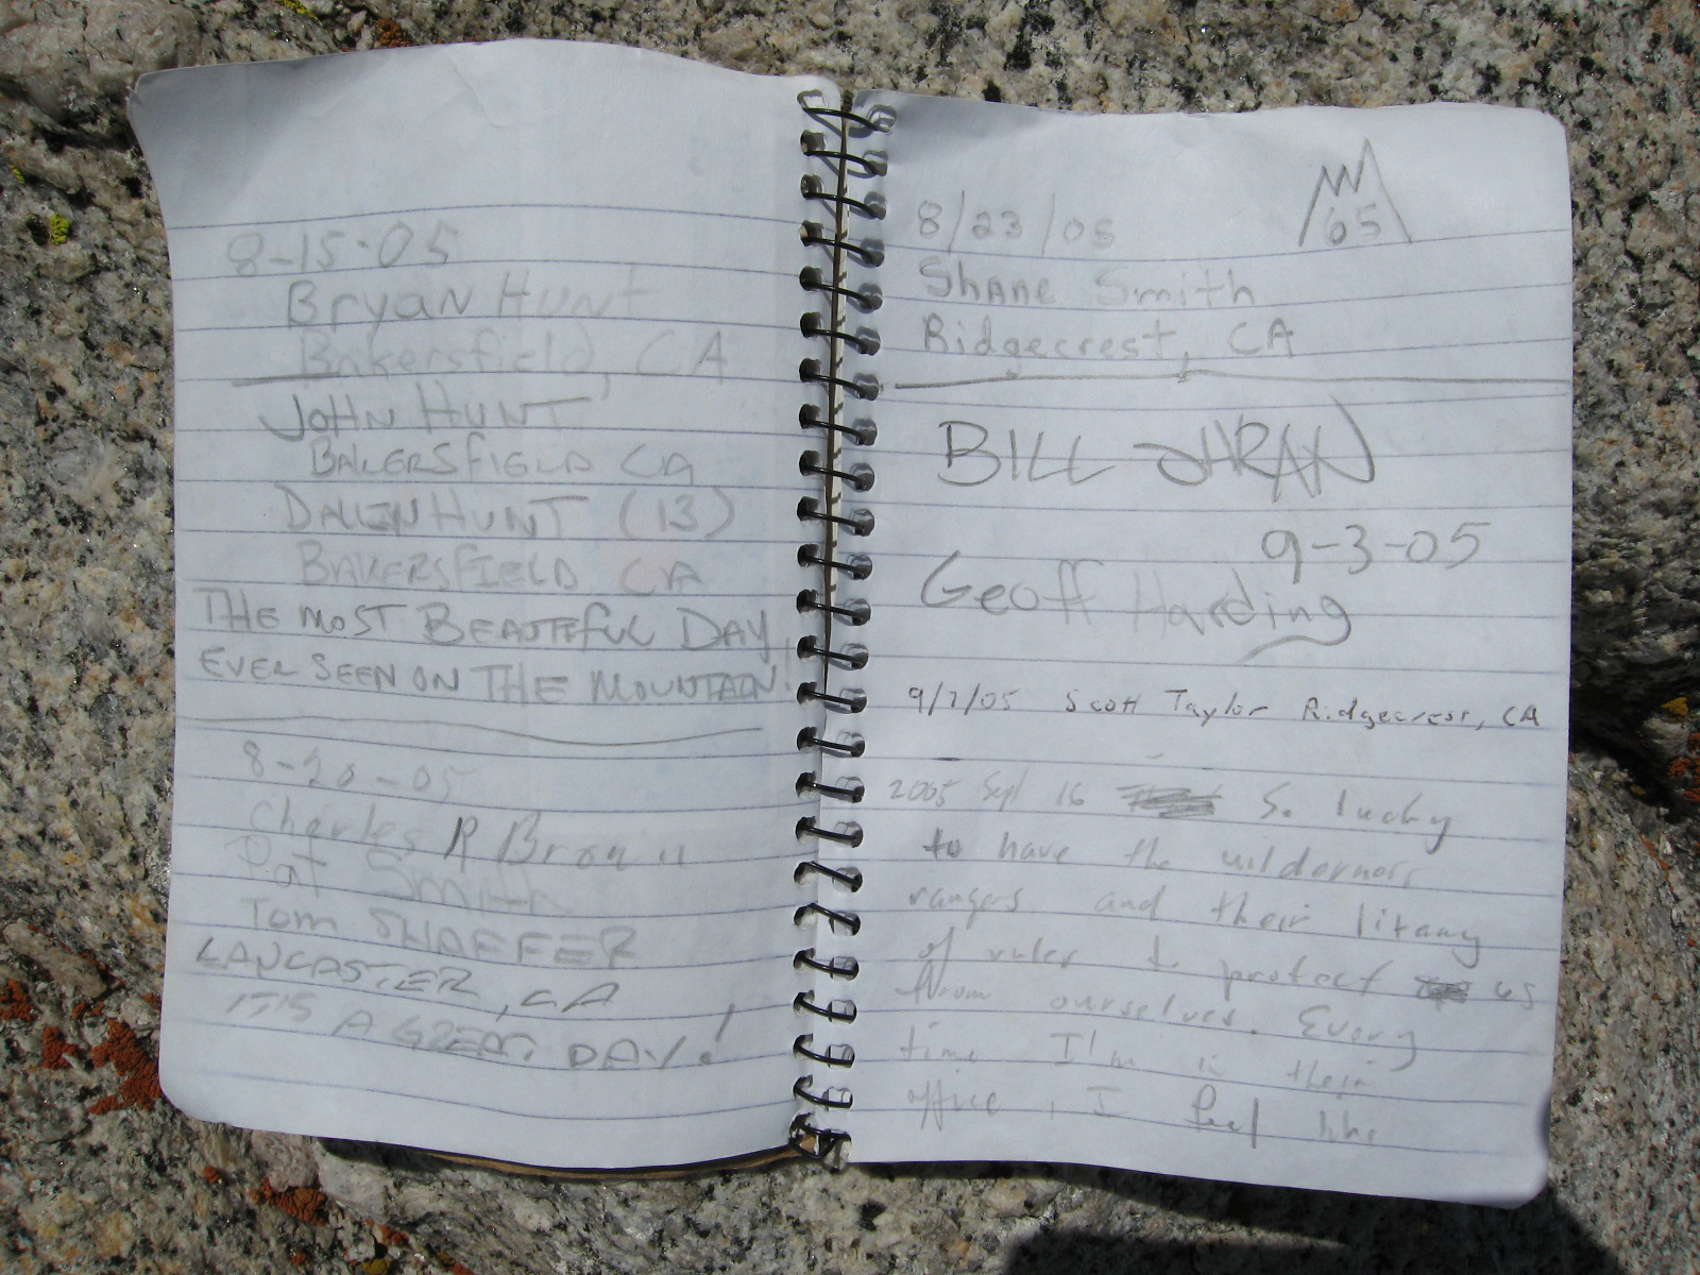 8-15-05
Bryan Hunt
Bakersfield, CA
JOHN HUNT
BAKERSFIELD CA
HUNT (13)
BAKERSFIELD CA
THE MOST BEAUTIFUL DAY
EVER SEEN ON THE MOUNTAIN!
8-20-05
Charles R Brown
Pat Smith
Tom SHAFFER
LANCASTER, CA
IT'S A GREAT DAY!
05
8/23/05
Shane Smith
Ridgecrest, CA
BILL
9-3-05
Geoff Harding
9/7/05 Scott Taylor Ridgecrest, CA
2005 Sept 16 So lucky
to have the wilderness
rangers and their litany
of rules to protect us
from ourselves. Every
time I'm in their
office, I feel like